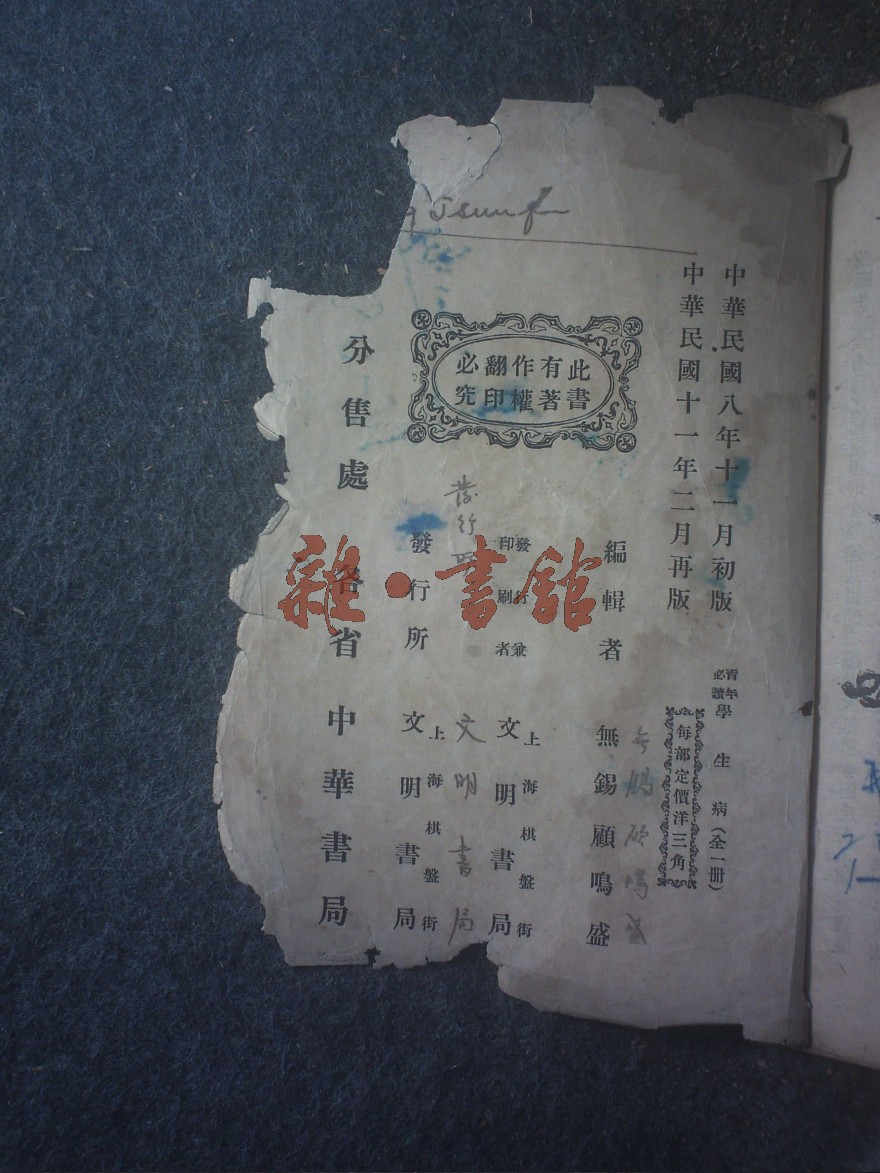 中華民國八年十一月初版
中華民國十一年二月再版
青年必讀 學生病（全一冊）
每部定價洋三角
此書有著作權翻印必究
編輯者 無錫顧鳴盛
無錫顧鳴盛
發行兼印刷者 上海棋盤街 文明書局
發行所
文明書局
發行所 上海棋盤街 文明書局
分售處 各省中華書局
雜·書館